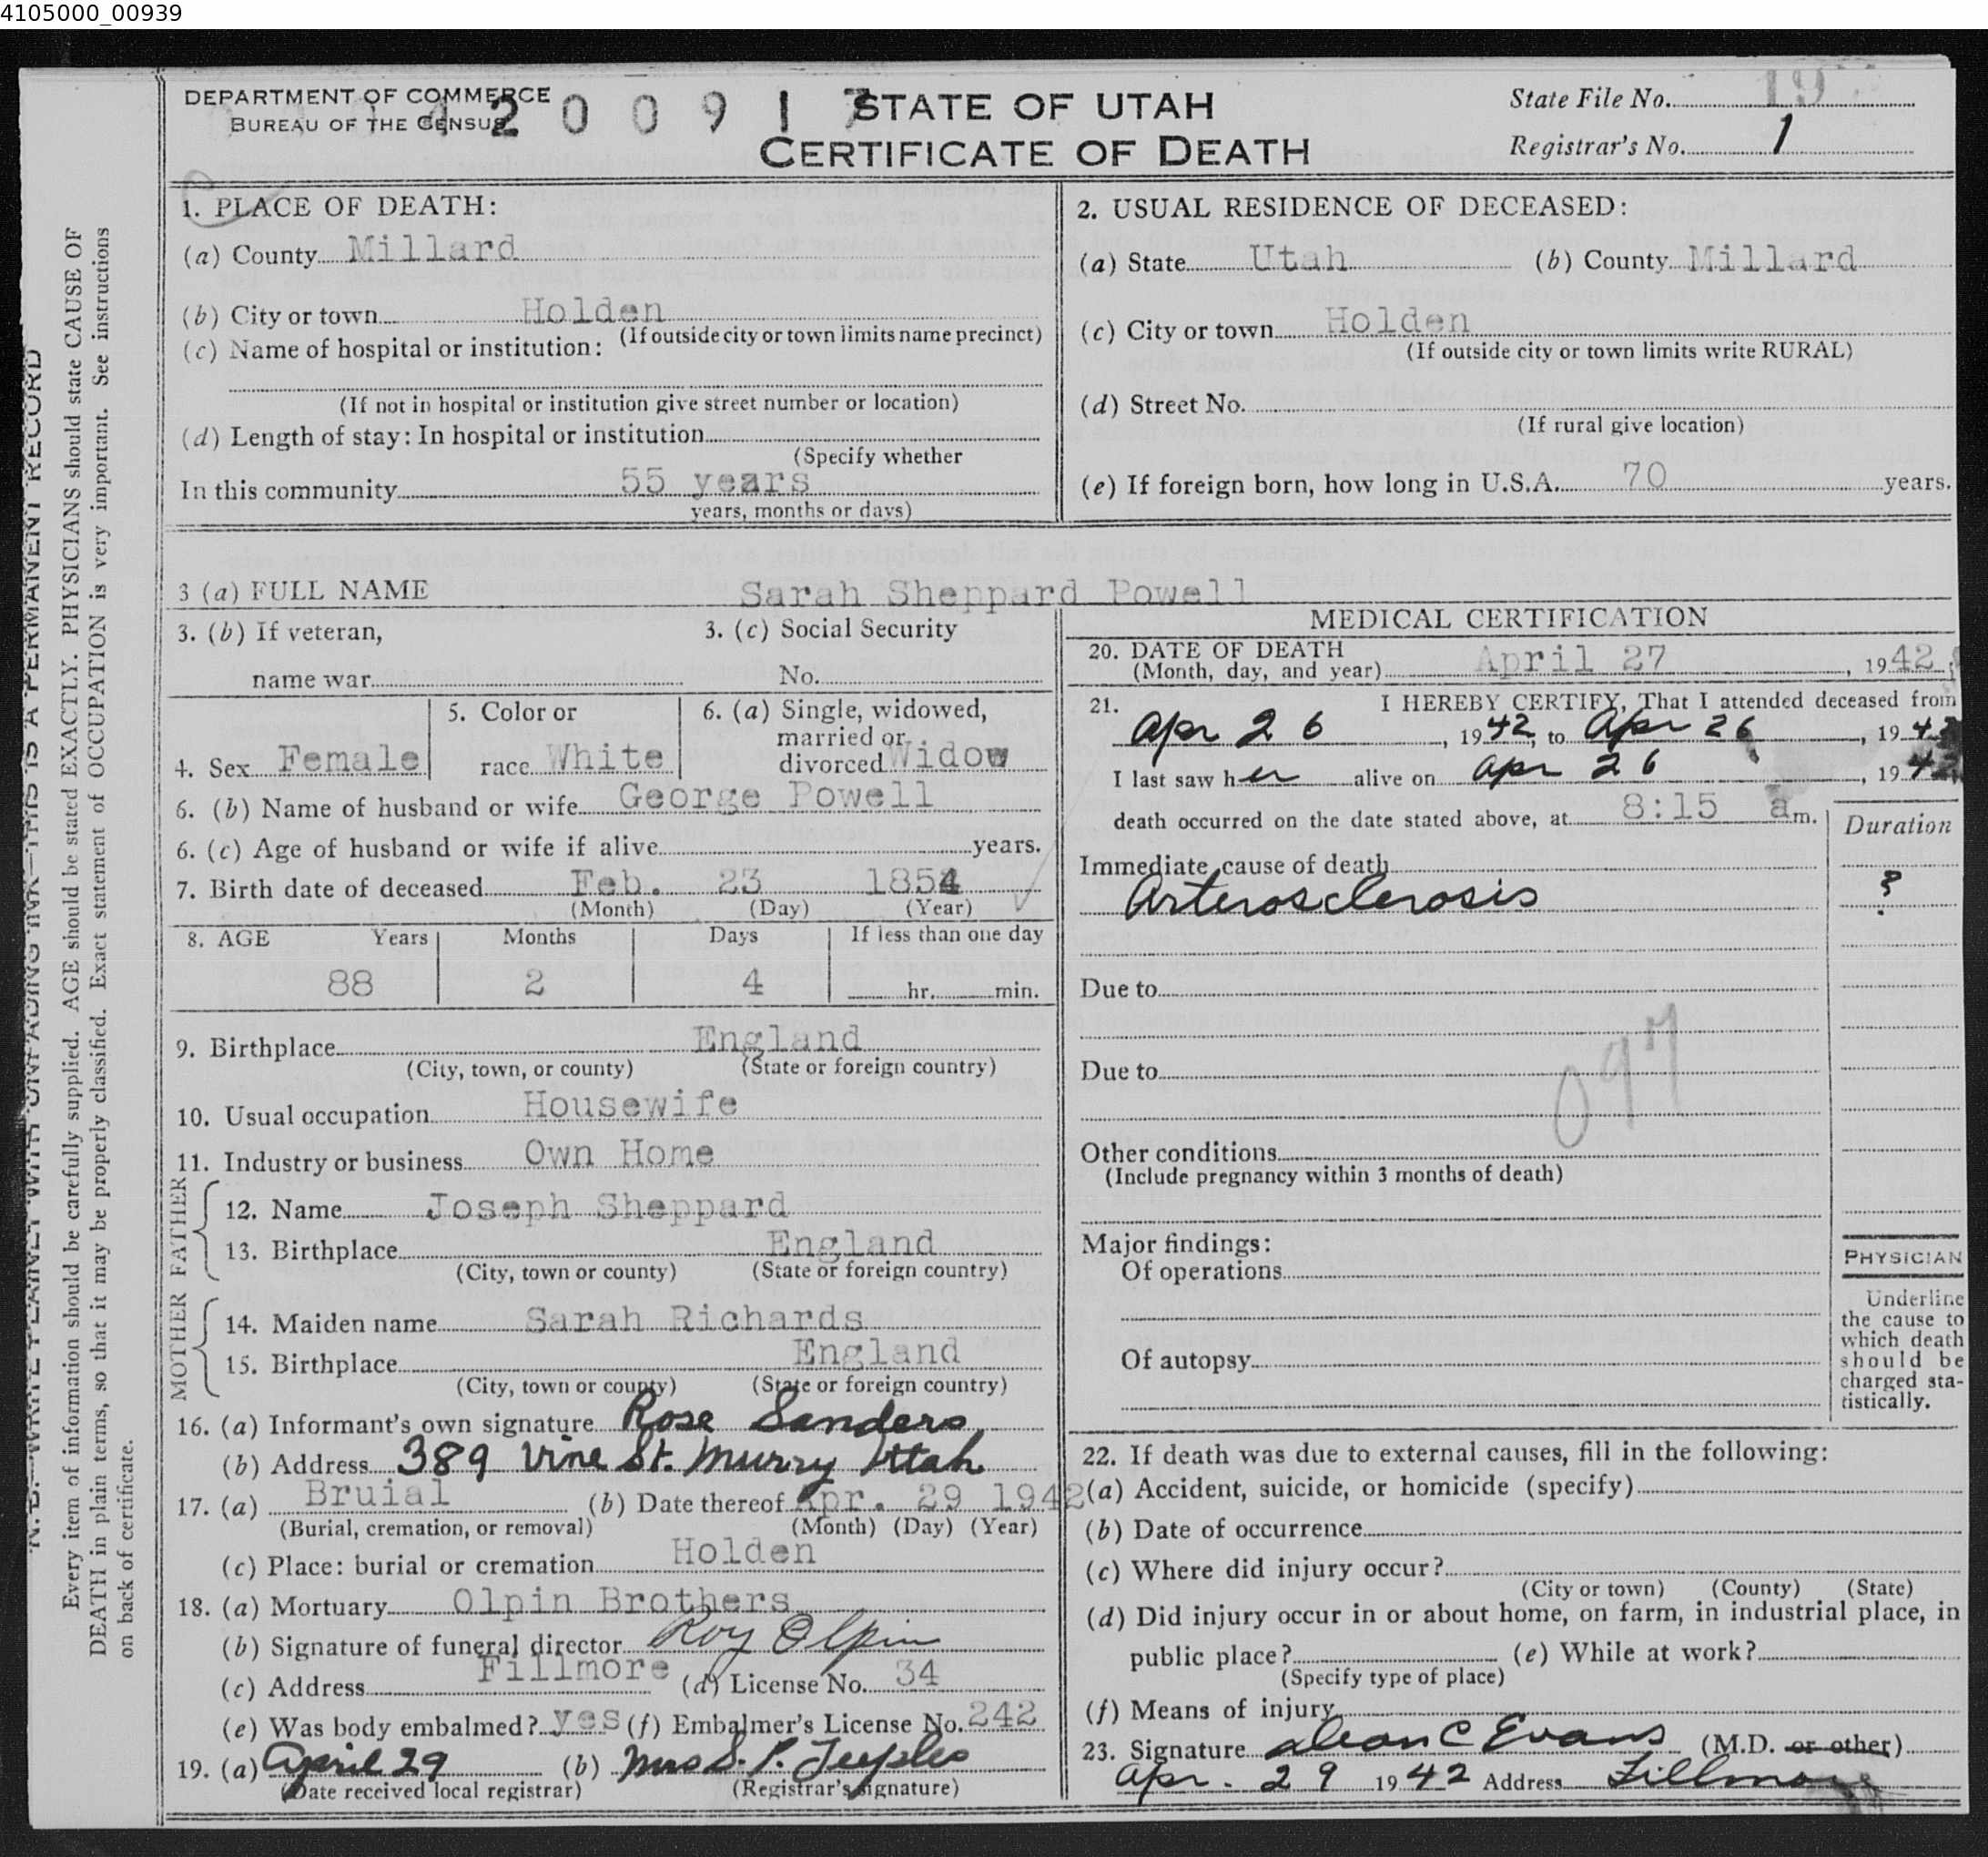 4105000_00939
DEPARTMENT OF COMMERCE
BUREAU OF THE CENSUS
4 2 0 0 9 1 7
STATE OF UTAH
CERTIFICATE OF DEATH
State File No. 19
Registrar's No. 1
1. PLACE OF DEATH:
(a) County Millard
(b) City or town Holden
(If outside city or town limits name precinct)
(c) Name of hospital or institution:
(If not in hospital or institution give street number or location)
(d) Length of stay: In hospital or institution
(Specify whether
In this community 55 years
years, months or days)
2. USUAL RESIDENCE OF DECEASED:
(a) State Utah (b) County Millard
(c) City or town Holden
(If outside city or town limits write RURAL)
(d) Street No.
(If rural give location)
(e) If foreign born, how long in U.S.A. 70 years.
3 (a) FULL NAME Sarah Sheppard Powell
3. (b) If veteran,
name war
3. (c) Social Security
No.
4. Sex Female
5. Color or
race White
6. (a) Single, widowed,
married or
divorced Widow
6. (b) Name of husband or wife George Powell
6. (c) Age of husband or wife if alive years.
7. Birth date of deceased Feb. 23 1854
(Month) (Day) (Year)
8. AGE Years Months Days If less than one day
88 2 4 hr. min.
9. Birthplace England
(City, town, or county) (State or foreign country)
10. Usual occupation Housewife
11. Industry or business Own Home
FATHER
12. Name Joseph Sheppard
13. Birthplace England
(City, town or county) (State or foreign country)
MOTHER
14. Maiden name Sarah Richards
15. Birthplace England
(City, town or county) (State or foreign country)
16. (a) Informant's own signature Rose Sanders
(b) Address 389 Vine St. Murry Utah
17. (a) Bruial (b) Date thereof Apr. 29 1942
(Burial, cremation, or removal) (Month) (Day) (Year)
(c) Place: burial or cremation Holden
18. (a) Mortuary Olpin Brothers
(b) Signature of funeral director Roy Olpin
(c) Address Fillmore (d) License No. 34
(e) Was body embalmed? yes (f) Embalmer's License No. 242
19. (a) April 29 (b) Mrs S. P. Teeples
(Date received local registrar) (Registrar's signature)
MEDICAL CERTIFICATION
20. DATE OF DEATH
(Month, day, and year) April 27, 1942
21. I HEREBY CERTIFY, That I attended deceased from
Apr 26, 1942, to Apr 26, 1942
I last saw her alive on Apr 26, 1942
death occurred on the date stated above, at 8:15 a m.
Duration
Immediate cause of death
Arterosclerosis ?
Due to
Due to
097
Other conditions
(Include pregnancy within 3 months of death)
Major findings:
Of operations
Of autopsy
PHYSICIAN
Underline
the cause to
which death
should be
charged sta-
tistically.
22. If death was due to external causes, fill in the following:
(a) Accident, suicide, or homicide (specify)
(b) Date of occurrence
(c) Where did injury occur?
(City or town) (County) (State)
(d) Did injury occur in or about home, on farm, in industrial place, in
public place? (e) While at work?
(Specify type of place)
(f) Means of injury
23. Signature Dean C Evans (M.D. or other)
Apr. 29 1942 Address Fillmore
N.B.—WRITE PLAINLY WITH UNFADING INK—THIS IS A PERMANENT RECORD
Every item of information should be carefully supplied. AGE should be stated EXACTLY. PHYSICIANS should state CAUSE OF
DEATH in plain terms, so that it may be properly classified. Exact statement of OCCUPATION is very important. See instructions
on back of certificate.